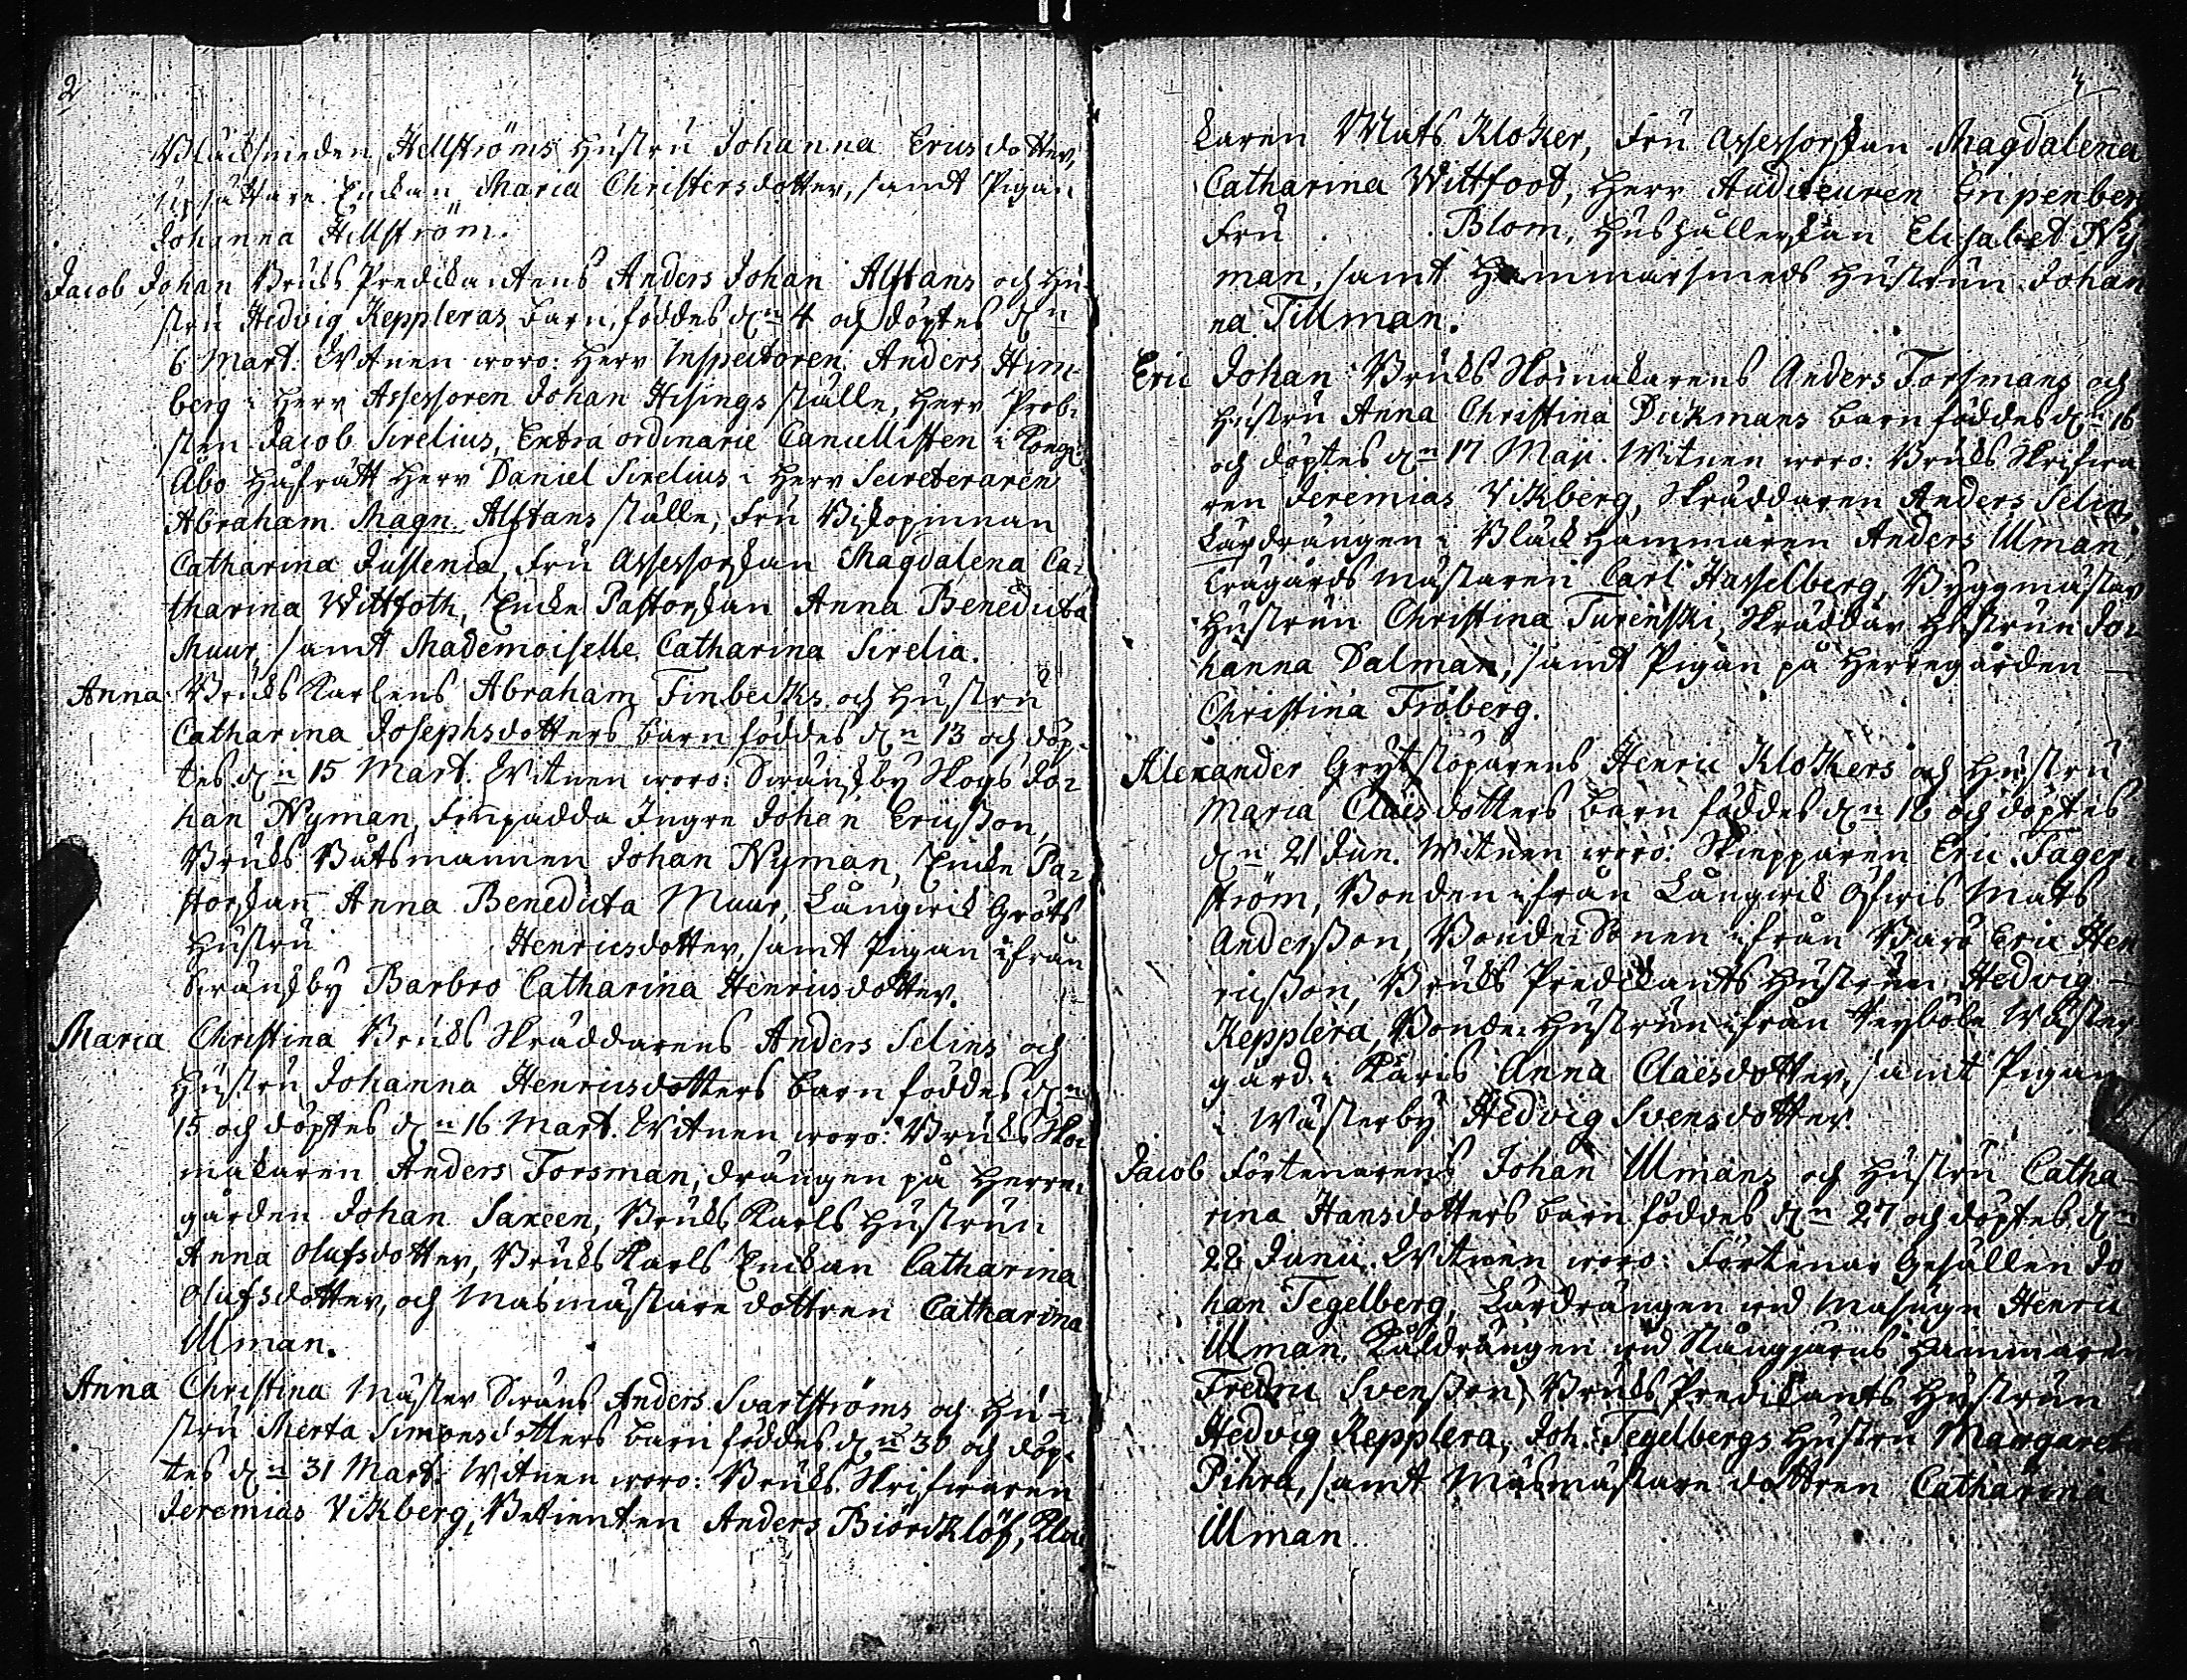 2
Bläcksmeden Hellströms Hustru Johanna Ericsdotter,
Enckan Maria Christersdotter, samt Pigan
Johanna Hellström.
Jacob Johan Bruks Predikantens Anders Johan Alftans och Hu-
stru Hedvig Keppleras barn, föddes d:n 4 och döptes d:n
6 Mart. Witnen woro: Herr Inspectoren Anders Him-
berg i Herr Assessoren Johan Hisings ställe, Herr Prob-
sten Jacob Sirelius, Extra ordinarie Cancellisten i Kongl:
Åbo Håfrätt Herr Daniel Sirelius i Herr Secreteraren
Abraham Magn. Alftans ställe, Fru Biskopinnan
Catharina Justenia, Fru Assessorskan Magdalena Ca-
tharina Wittfoth, Encke Pastorskan Anna Benedicta
Muur, samt Mademoiselle Catharina Sirelia.
Anna Bruks Karlens Abraham Finbecks och Hustru
Catharina Josephsdotters barn föddes d:n 13 och döp-
tes d:n 15 Mart. Witnen woro: Swänskby Skogs Jo-
han Nyman, Johan Ericsson,
Bruks Båtsmannen Johan Nyman, Encke Pa-
storskan Anna Benedicta Muur, Långwik Gröts
Hustru Henricsdotter, samt Pigan ifrån
Swänskby Barbro Catharina Henricsdotter.
Maria Christina Bruks Skräddarens Anders Selins och
Hustru Johanna Henricsdotters barn föddes d:n
15 och döptes d:n 16 Mart. Witnen woro: Bruks Sko-
makaren Anders Forsman, drängen på Herre-
gården Johan Saxeen, Bruks Karls Hustrun
Anna Olufsdotter, Bruks Karls Enckan Catharina
Olufsdotter, och Masmästare dottren Catharina
Ulman.
Anna Christina Mäster Swäns Anders Svartströms och Hu-
stru Merta Simonsdotters barn föddes d:n 30 och döp-
tes d:n 31 Mart. Witnen woro: Bruks Skrifwaren
Jeremias Vikberg, Betienten Anders Biörcklöf,
karen Mats Klocker, Fru Assessorskan Magdalena
Catharina Wittfoot, Herr Auditeuren Gripenberg
Fru Blom, Hushållerskan Elisabet Ny-
man, samt Hammarsmeds Hustrun Johan
na Tillman.
Eric Johan Bruks Skomakarens Anders Forsmans och
Hustru Anna Christina Dickmans barn föddes d:n 16
och döptes d:n 17 Maji. Witnen woro: Bruks Skrifwa
ren Jeremias Vikberg, Skräddaren Anders Selin,
Lärdrängen i Bläck hammaren Anders Ulman,
Trägårds mästaren Carl Hasselberg, Byggmästar
Hustrun Christina Turenski, Skräddar Hustrun Jo-
hanna Dalman, samt Pigan på Herregården
Christina Fröberg.
Alexander Grytstöparens Henric Klockers och Hustru
Maria Claesdotters barn föddes d:n 18 och döptes
d:n 21 Jun. Witnen woro: Skepparen Eric Fager-
ström, Bonden ifrån Långwik Öfwis Mats
Andersson, Bonde Sonen ifrån Barö Eric Hen
ricsson, Bruks Predikants Hustrun Hedvig
Kepplera, Bonde Hustrun ifrån Wäster
gård i Karis Anna Claesdotter, samt Pigan
i Wästerby Hedvig Svensdotter.
Jacob Förtenarens Johan Ulmans och Hustru Catha
rina Hansdotters barn föddes d:n 27 och döptes d:n
28 Junii. Witnen woro: Förtenar Gesällen Jo
han Tegelberg, Lärdrängen wid Masugn Henric
Ulman, Kåldrängen wid Stångjärns Hammaren
Fredric Svensson, Bruks Predikants Hustrun
Hedvig Kepplera, Joh. Tegelbergs Hustru Margareta
Pihra, samt Masmästare dottren Catharina
Ulman.